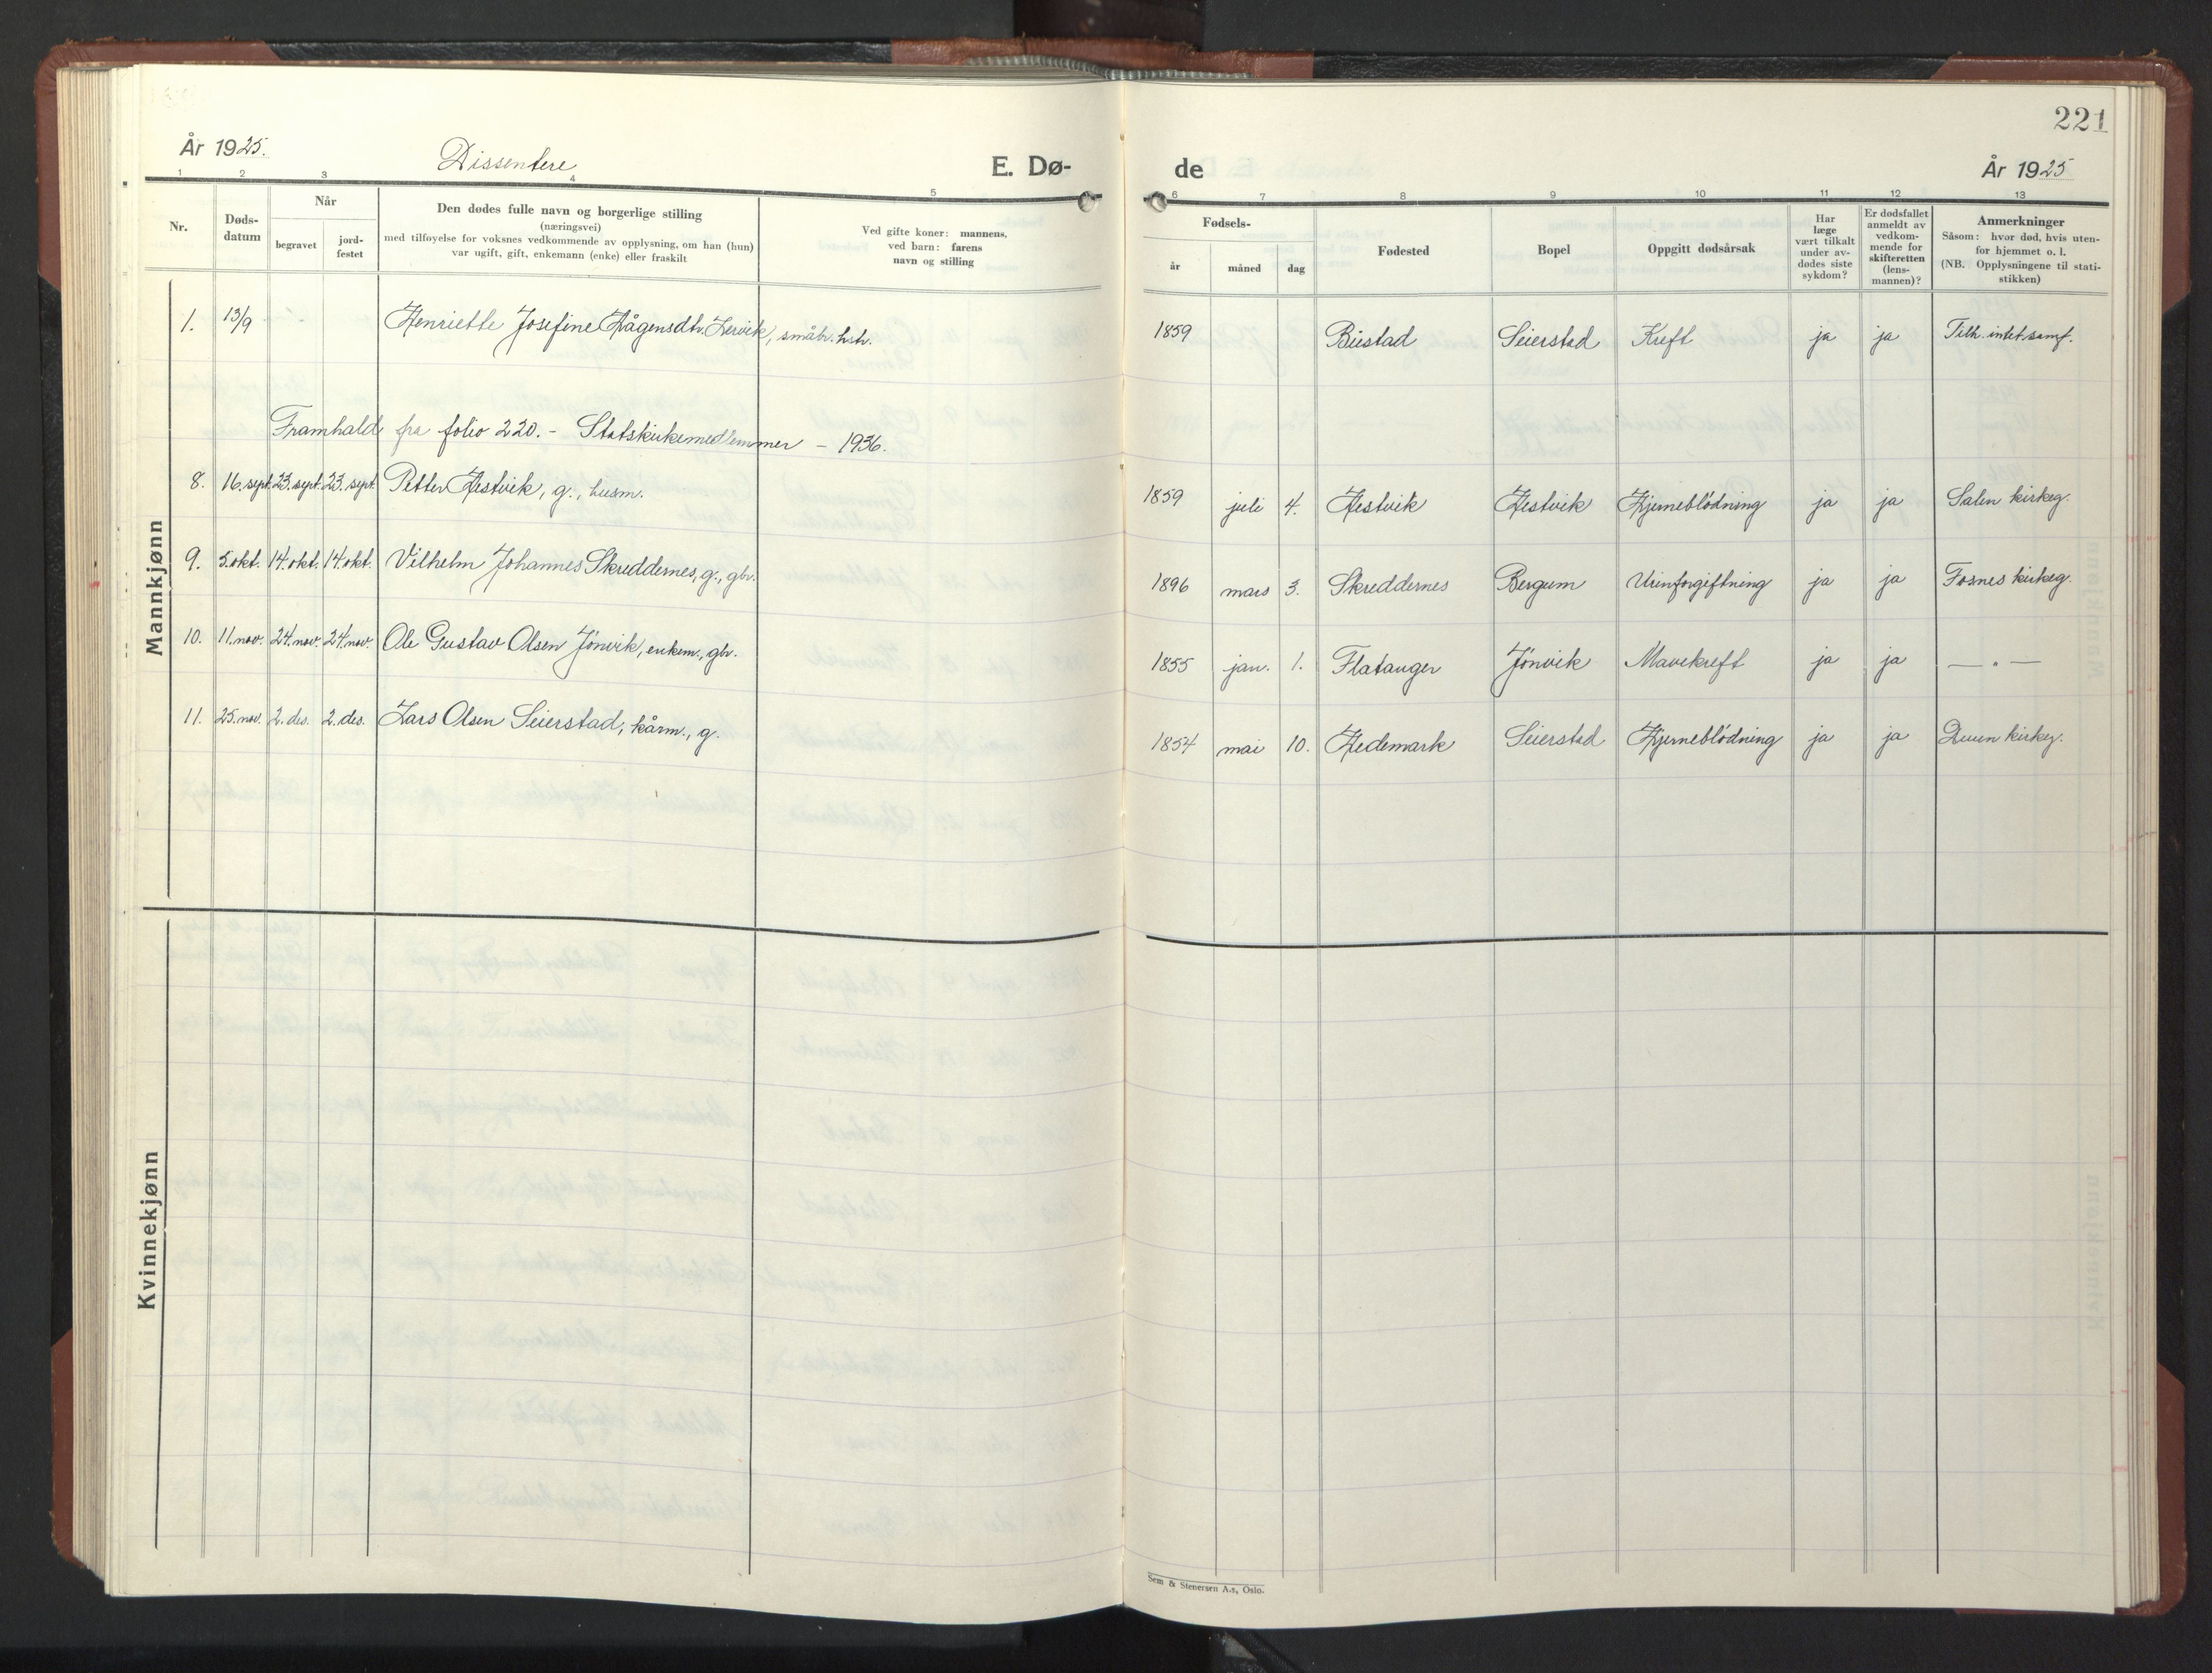 År 1925.
Dissentere
E. Dø-
1 2 3 4 5
Nr.
Døds-
datum
Når
begravet
jord-
festet
Den dødes fulle navn og borgerlige stilling
(næringsvei)
med tilføyelse for voksnes vedkommende av opplysning, om han (hun)
var ugift, gift, enkemann (enke) eller fraskilt
Ved gifte koner: mannens,
ved barn: farens
navn og stilling
1. 13/9 Henriette Josefine Hågensdtr. Hervik, småbr. hstr.
Framhald fra folio 220. - Statskirkemedlemmer - 1936.
8. 16. sept. 23. sept. 23. sept. Petter Hestvik, g., husm.
9. 5. okt. 14. okt. 14. okt. Vilhelm Johannes Skreddernes, g., gbr.
10. 11. nov. 24. nov. 24. nov. Ole Gustav Olsen Jønvik, enkem., gbr.
11. 25. nov. 2. des. 2. des. Lars Olsen Seierstad, kårm., g.
Mannkjønn
Kvinnekjønn
221
de
År 1925
6 7 8 9 10 11 12 13
Fødsels-
år
måned
dag
Fødested
Bopel
Oppgitt dødsårsak
Har
læge
vært tilkalt
under av-
dødes siste
sykdom?
Er dødsfallet
anmeldt av
vedkom-
mende for
skifteretten
(lens-
mannen)?
Anmerkninger
Såsom: hvor død, hvis uten-
for hjemmet o. l.
(NB. Opplysningene til stati-
stikken)
1859 Bustad Seierstad Kreft ja ja Tilh. intet samf.
1859 juli 4. Hestvik Hestvik Hjerneblödning ja ja Salen kirkeg.
1896 mars 3. Skreddernes Bergum Urinforgiftning ja ja Fosnes kirkeg.
1855 jan. 1. Flatanger Jönvik Mavekreft ja ja — " —
1854 mai 10. Hedemark Seierstad Hjerneblödning ja ja Duun kirkeg.
Sem & Stenersen A.s, Oslo.